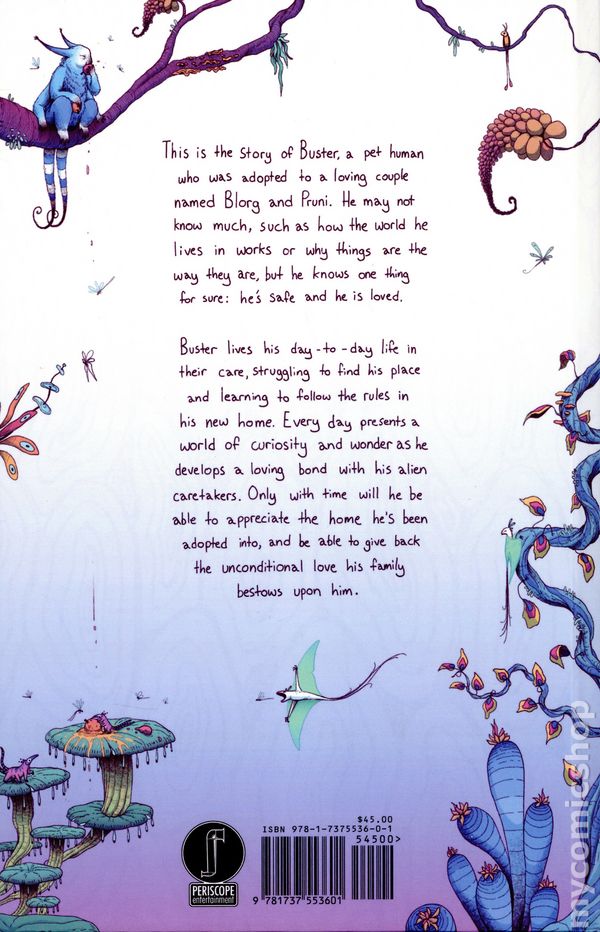 This is the story of Buster, a pet human
who was adopted to a loving couple
named Blorg and Pruni. He may not
know much, such as how the world he
lives in works or why things are the
way they are, but he knows one thing
for sure: he's safe and he is loved.
Buster lives his day-to-day life in
their care, struggling to find his place
and learning to follow the rules in
his new home. Every day presents a
world of curiosity and wonder as he
develops a loving bond with his alien
caretakers. Only with time will he be
able to appreciate the home he's been
adopted into, and be able to give back
the unconditional love his family
bestows upon him.
$45.00
ISBN 978-1-7375536-0-1
54500>
9 781737 553601
PERISCOPE
entertainment
mycomicshop